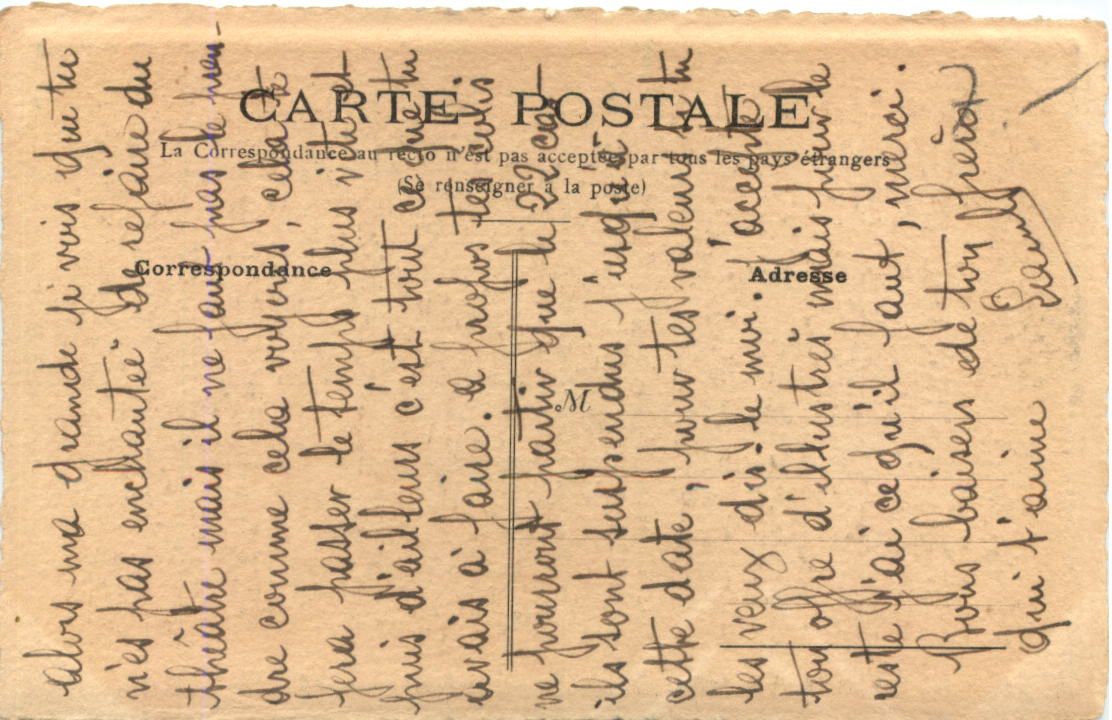 CARTE POSTALE
La Correspondance au recto n'est pas acceptée par tous les pays étrangers
(Se renseigner à la poste)
Correspondance
Adresse
M
alors ma grande je vois que tu
n'es pas enchantée de refaire du
théâtre mais il ne faut pas le pren-
dre comme cela voyons, cela te
fera passer le temps plus vite et
puis d'ailleurs c'est tout ce que tu
avais à faire. à propos tes colis
ne pourront partir que le 22 car
ils sont suspendus jusqu'à
cette date, pour tes valeurs si tu
les veux dis le moi. j'accepte
ton offre d'illustrés mais pour le
reste j'ai ce qu'il faut, merci.
Bons baisers de ton frérot
qui t'aime